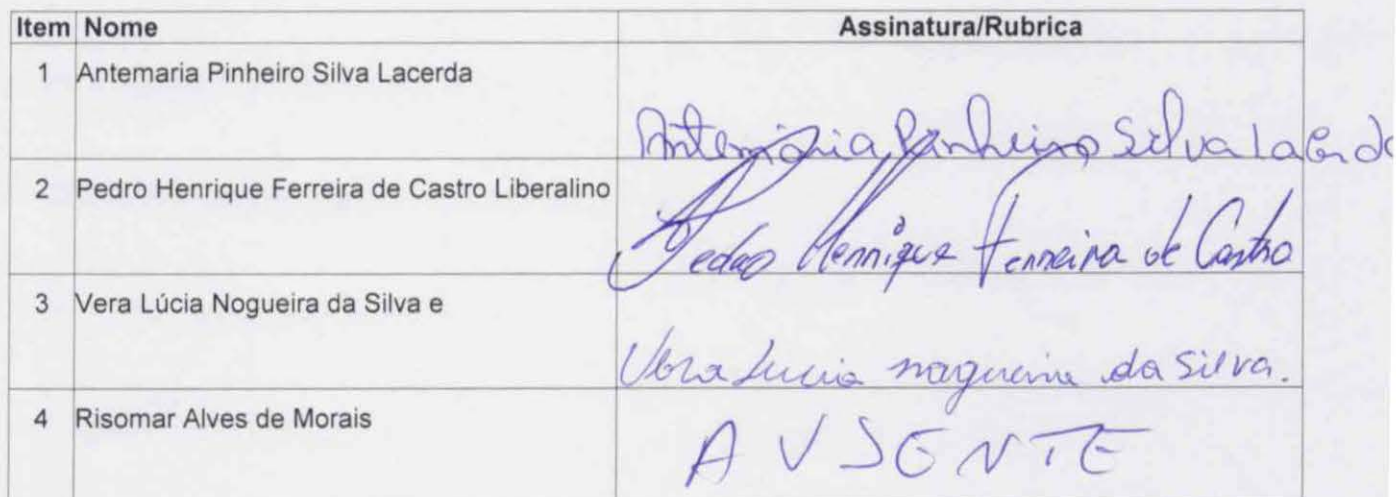 Item Nome Assinatura/Rubrica
1 Antemaria Pinheiro Silva Lacerda
Antemária Pinheiro Silva Lacerda
2 Pedro Henrique Ferreira de Castro Liberalino
Pedro Henrique Ferreira de Castro
3 Vera Lúcia Nogueira da Silva e
Vera Lucia nogueira da Silva.
4 Risomar Alves de Morais
AUSENTE